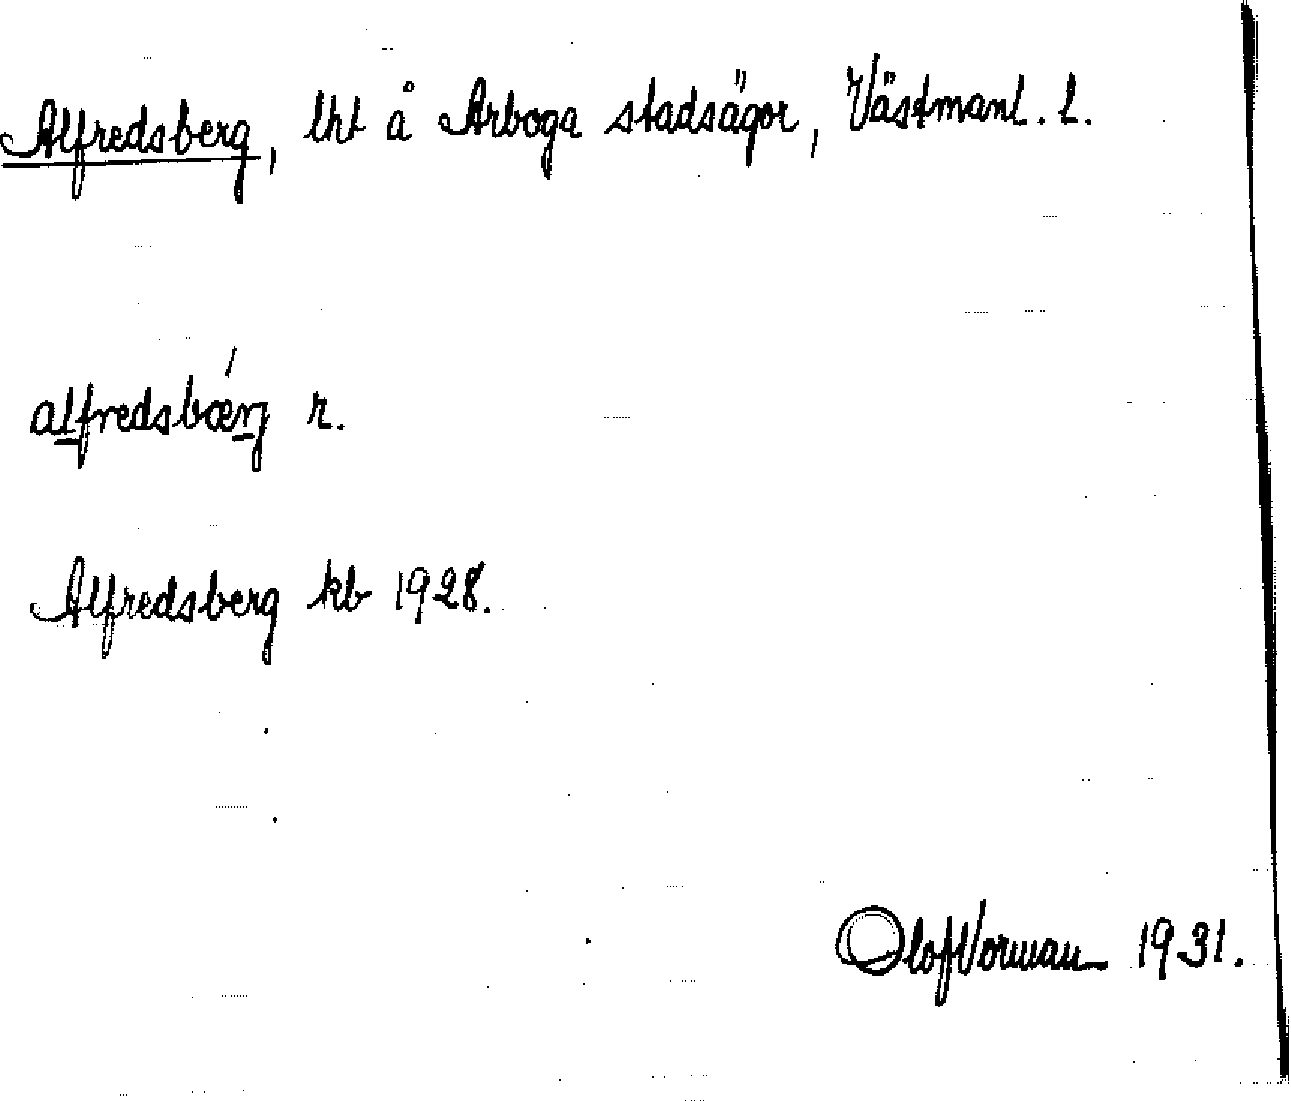 Alfredsberg, lht å Arboga stadsägor, Västmanl. l.
alfredsbærj r.
Alfredsberg kb 1928.
Olof Vorman 1931.